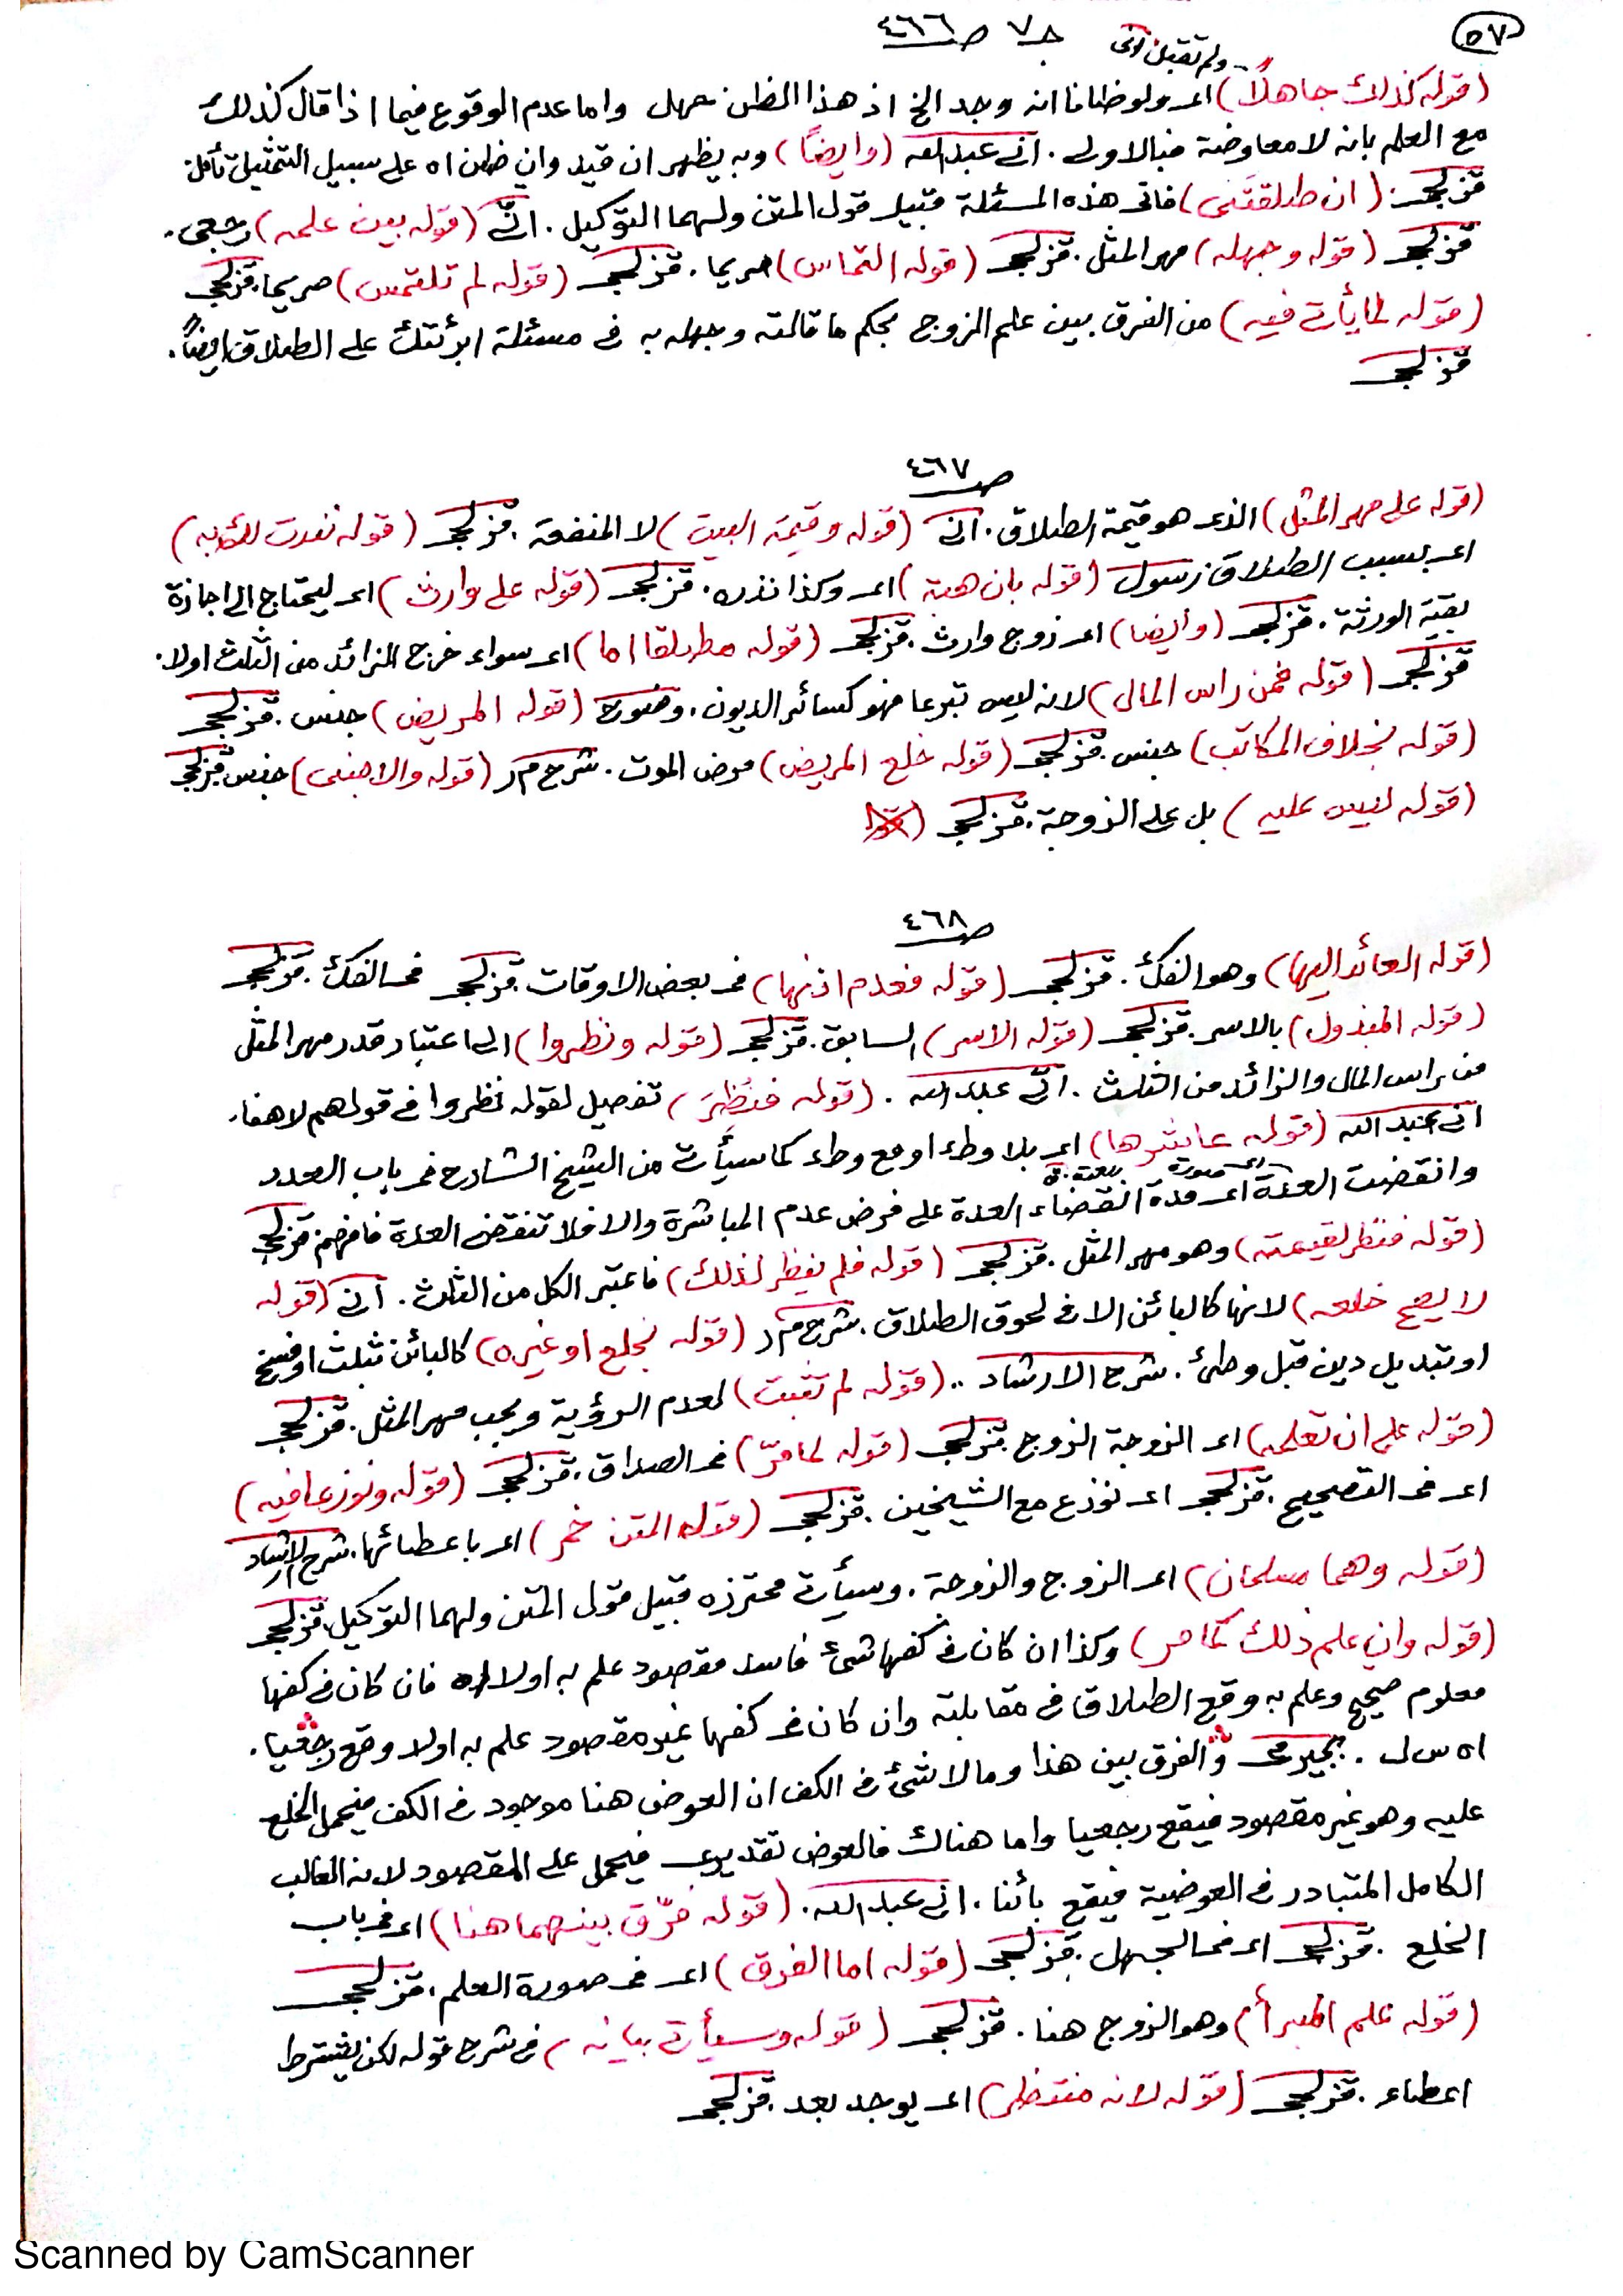 ٥٧
حـ٧ صـ٤٦٦
ولم تقبل اني
(قوله كذلك جاهلا) اى ولو ظانا انه وجد الخ اذ هذا الظن جهل واما عدم الوقوع فيما اذا قال كذلك
مع العلم بانه لا معاوضة فبالاولى . انى عبدالله (وايضًا) وبه يظهر ان قيد وان ظن اه على سبيل التمثيل تأمل
قزلجى . (ان طلقتَنى) فاتى هذه المسئلة قبيل قول المتن ولهما التوكيل . انى (قوله بين علمه) رجعى .
قزلجى (قوله وجهله) مهر المثل . قزلجى (قوله التماس) صريحا . قزلجى (قوله لم تلتمس) صريحا . قزلجى
(قوله لما يأتى فيه) من الفرق بين علم الزوج بحكم ما قالته وجهله به فى مسئلة ابرئتك على الطلاق ايضًا .
قزلجى
صـ٤٦٧
(قوله على مهر المثل) الذى هو قيمة الطلاق . انى (قوله وقيمة البيت) لا المنفعة . قزلجى (قوله نفدت للكابه)
اى بسبب الطلاق زسول (قوله بان هبة) اى وكذا نذره . قزلجى (قوله على وارث) اى ليحتاج الى اجازة
بقية الورثة . قزلجى (وايضا) اى زوج وارث . قزلجى (قوله مطلقا اما) اى سواء خرج الزائد من الثلث اولا .
قزلجى (قوله فمن راس المال) لانه ليس تبرعا فهو كسائر الديون . (قوله المريض) جنس . قزلجى
(قوله بخلاف المكاتب) جنس . قزلجى (قوله خلع المريض) مرض الموت . شرح م ر (قوله والاجنبى) جنس قزلجى
(قوله ليس عليه) بل على الزوجة . قزلجى
صـ٤٦٨
(قوله العائد اليها) وهو الفك . قزلجى (قوله فعدم اذنها) فى بعض الاوقات . قزلجى فى الفك . قزلجى
(قوله المبذول) بالاسر . قزلجى (قوله الاسر) السابق . قزلجى (قوله ونظروا) الى اعتبار قدر مهر المثل
من راس المال والزائد من الثلث . انى عبدالله . (قوله فنُظِرَ) تفصيل لقوله نظروا فى قولهم لا هنا .
انى عبدالله (قوله عاشرها) اى بلا وطء او مع وطء كما سيأتى من الشيخ الشارح فى باب العدد
وانقضت العدة اى مدة انقضاء العدة على فرض عدم المباشرة والا فلا تنقضى العدة فافهم قزلجى
(قوله فنظر لقيمته) وهو مهر المثل . قزلجى (قوله فلم ينظر لذلك) فاعتبر الكل من الثلث . انى (قوله
لا يصح خلعه) لانها كالبائن الا فى لحوق الطلاق . شرح م ر (قوله بخلع او غيره) كالبائن بثلث او فسخ
او تبديل دين قبل وطئ . شرح الارشاد .. (قوله لم تثبت) لعدم الرؤية ويجب مهر المثل . قزلجى
(قوله على ان تعلمه) اى الزوجة الزوج قزلجى (قوله لما مرّ) فى الصداق . قزلجى (قوله ونوزعا فيه)
اى فى التصحيح . قزلجى اى نوزع مع الشيخين . قزلجى (قوله المتن خمر) اى باعطائها . شرح الارشاد
(قوله وهما مسلمان) اى الزوج والزوجة . وسيأتى محترزه قبيل قول المتن ولهما التوكيل . قزلجى
(قوله وان علم ذلك كما مر) وكذا ان كان فى كفها شئ فاسد مقصود علم به اولا اه فان كان فى كفها
معلوم صحيح وعلم به وقع الطلاق فى مقابلته وان كان فى كفها غير مقصود علم به اولا وقع رجعيا .
اه س ل . بجيرمى والفرق بين هذا وما لا شئ فى الكف ان العوض هنا موجود فى الكف فيحمل الخلع
عليه وهو غير مقصود فيقع رجعيا واما هناك فالعوض تقديرى فيحمل على المقصود لانه الغالب
الكامل المتبادر فى العوضية فيقع بائنا . انى عبدالله . (قوله فرّق بينهما هنا) اى فى باب
الخلع . قزلجى اى فى الجهل . قزلجى (قوله اما الفرق) اى فى صورة العلم . قزلجى
(قوله علم المبرأ) وهو الزوج هنا . قزلجى (قوله وسيأتى بيانه) فى شرح قوله لكن يشترط
اعطاء . قزلجى (قوله لانه منتظر) اى يوجد بعد . قزلجى
Scanned by CamScanner